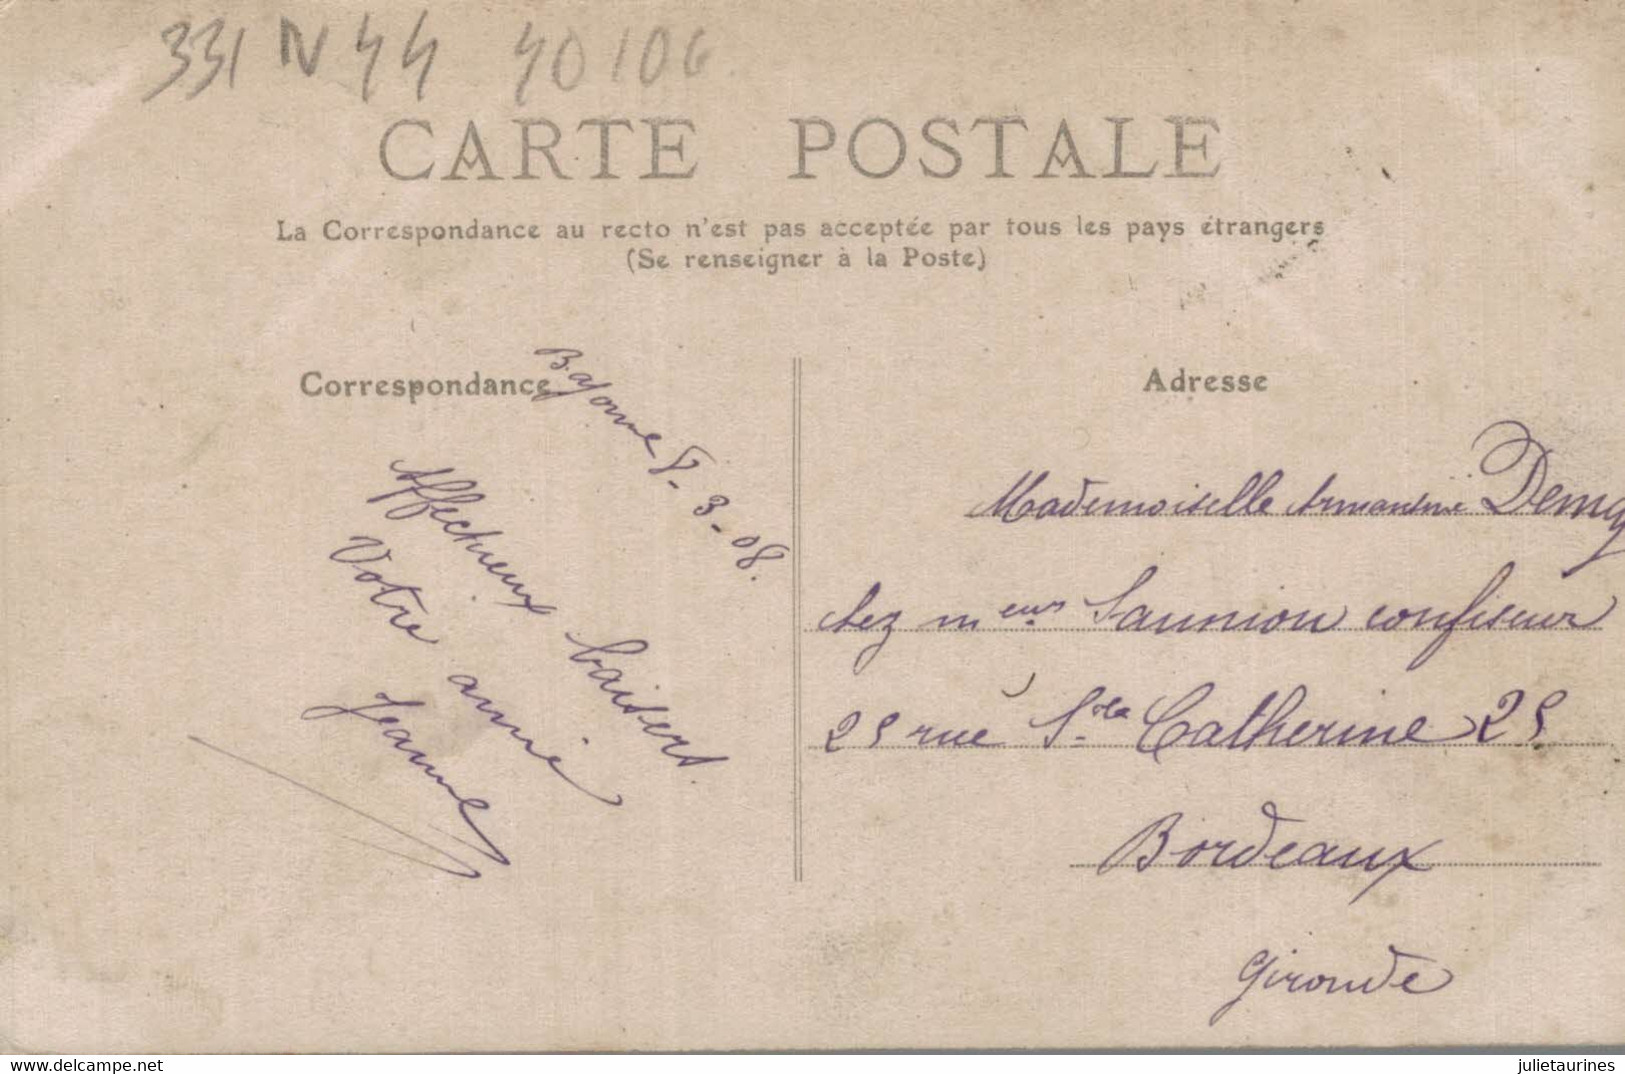 331 N 44 40106
CARTE POSTALE
La Correspondance au recto n'est pas acceptée par tous les pays étrangers
(Se renseigner à la Poste)
Correspondance
Bayonne 8-3-08.
Affectueux baisers.
Votre amie
Jeanne
Adresse
Mademoiselle Armantine
chez meurs Saunion confiseur
25 rue Ste Catherine 25
Bordeaux
Gironde
Delcampe.net
julietaurines